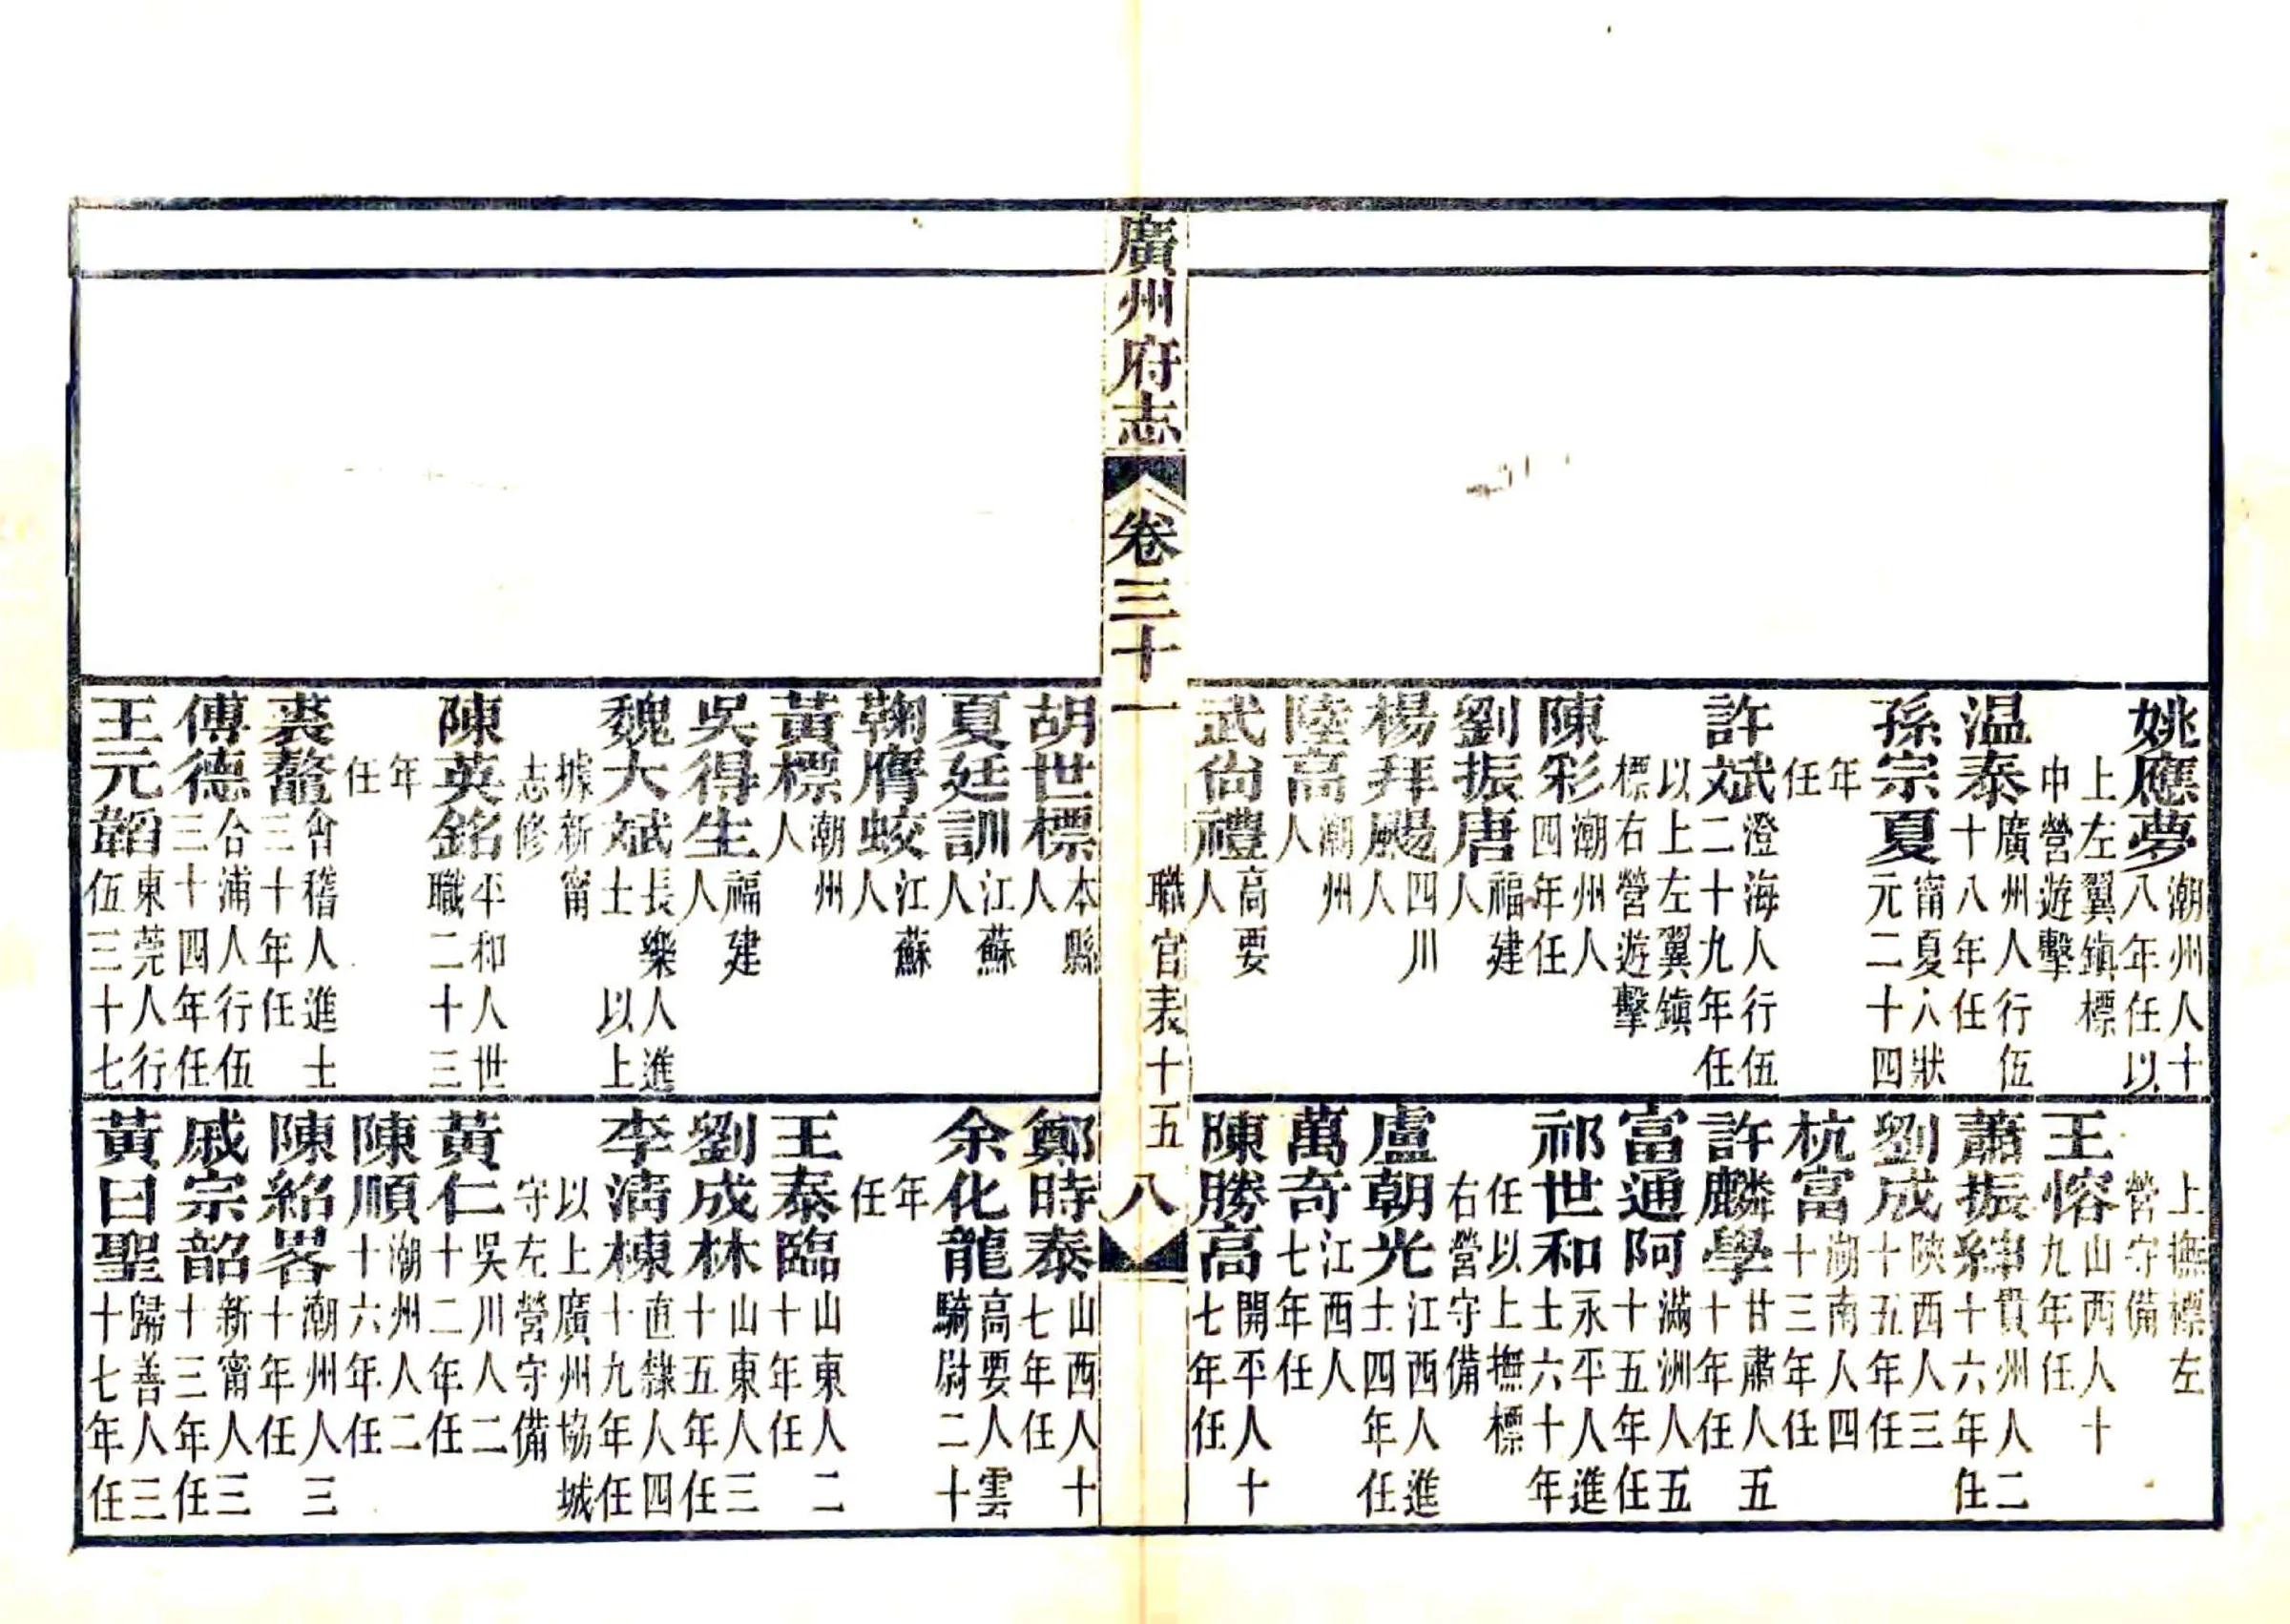 姚應夢潮州人十八年任以
上左翼鎮標中營遊擊
温泰廣州人行伍十八年任
孫宗夏甯夏人狀元二十四
年任
許斌澄海人行伍二十九年任
以上左翼鎮標右營遊擊
陳彩潮州人四年任
劉振唐福建人
楊拜颺四川人
陸高潮州人
武尙禮高要人
上撫標左營守備
王愹山西人十九年任
蕭振紳貴州人二十六年任
劉成陝西人三十五年任
杭富湖南人四十三年任
許麟學甘肅人五十年任
富通阿滿洲人五十五年任
祁世和永平人進士六十年
任以上撫標右營守備
盧朝光江西人進士四年任
萬奇江西人七年任
陳勝高開平人十七年任
廣州府志 卷三十一 職官表十五 八
胡世標本縣人
夏廷訓江蘇人
鞠膺蛟江蘇人
黃標潮州人
吳得生福建人
魏大斌長樂人進士以上
據新甯志修
陳英銘平和人世職二十三
年任
裘鰲會稽人進士三十年任
傅德合浦人行伍三十四年任
王元韜東莞人行伍三十七
鄭時泰山西人十七年任
余化龍高要人雲騎尉二十
年任
王泰臨山東人二十年任
劉成林山東人三十五年任
李淸棟直隸人四十九年任
以上廣州協城守左營守備
黃仁吳川人二十二年任
陳順潮州人二十六年任
陳紹畧潮州人三十年任
戚宗韶新甯人三十三年任
黃曰聖歸善人三十七年任